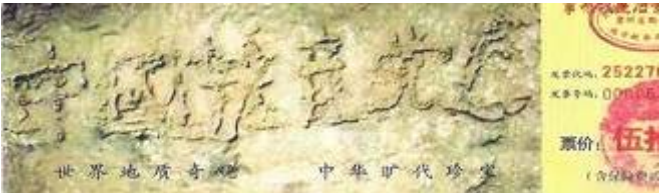 中國共产党亡
世界地质奇观 中华旷代珍宝
发票代码: 25227
发票号码:
票价: 伍拾
(含保险费